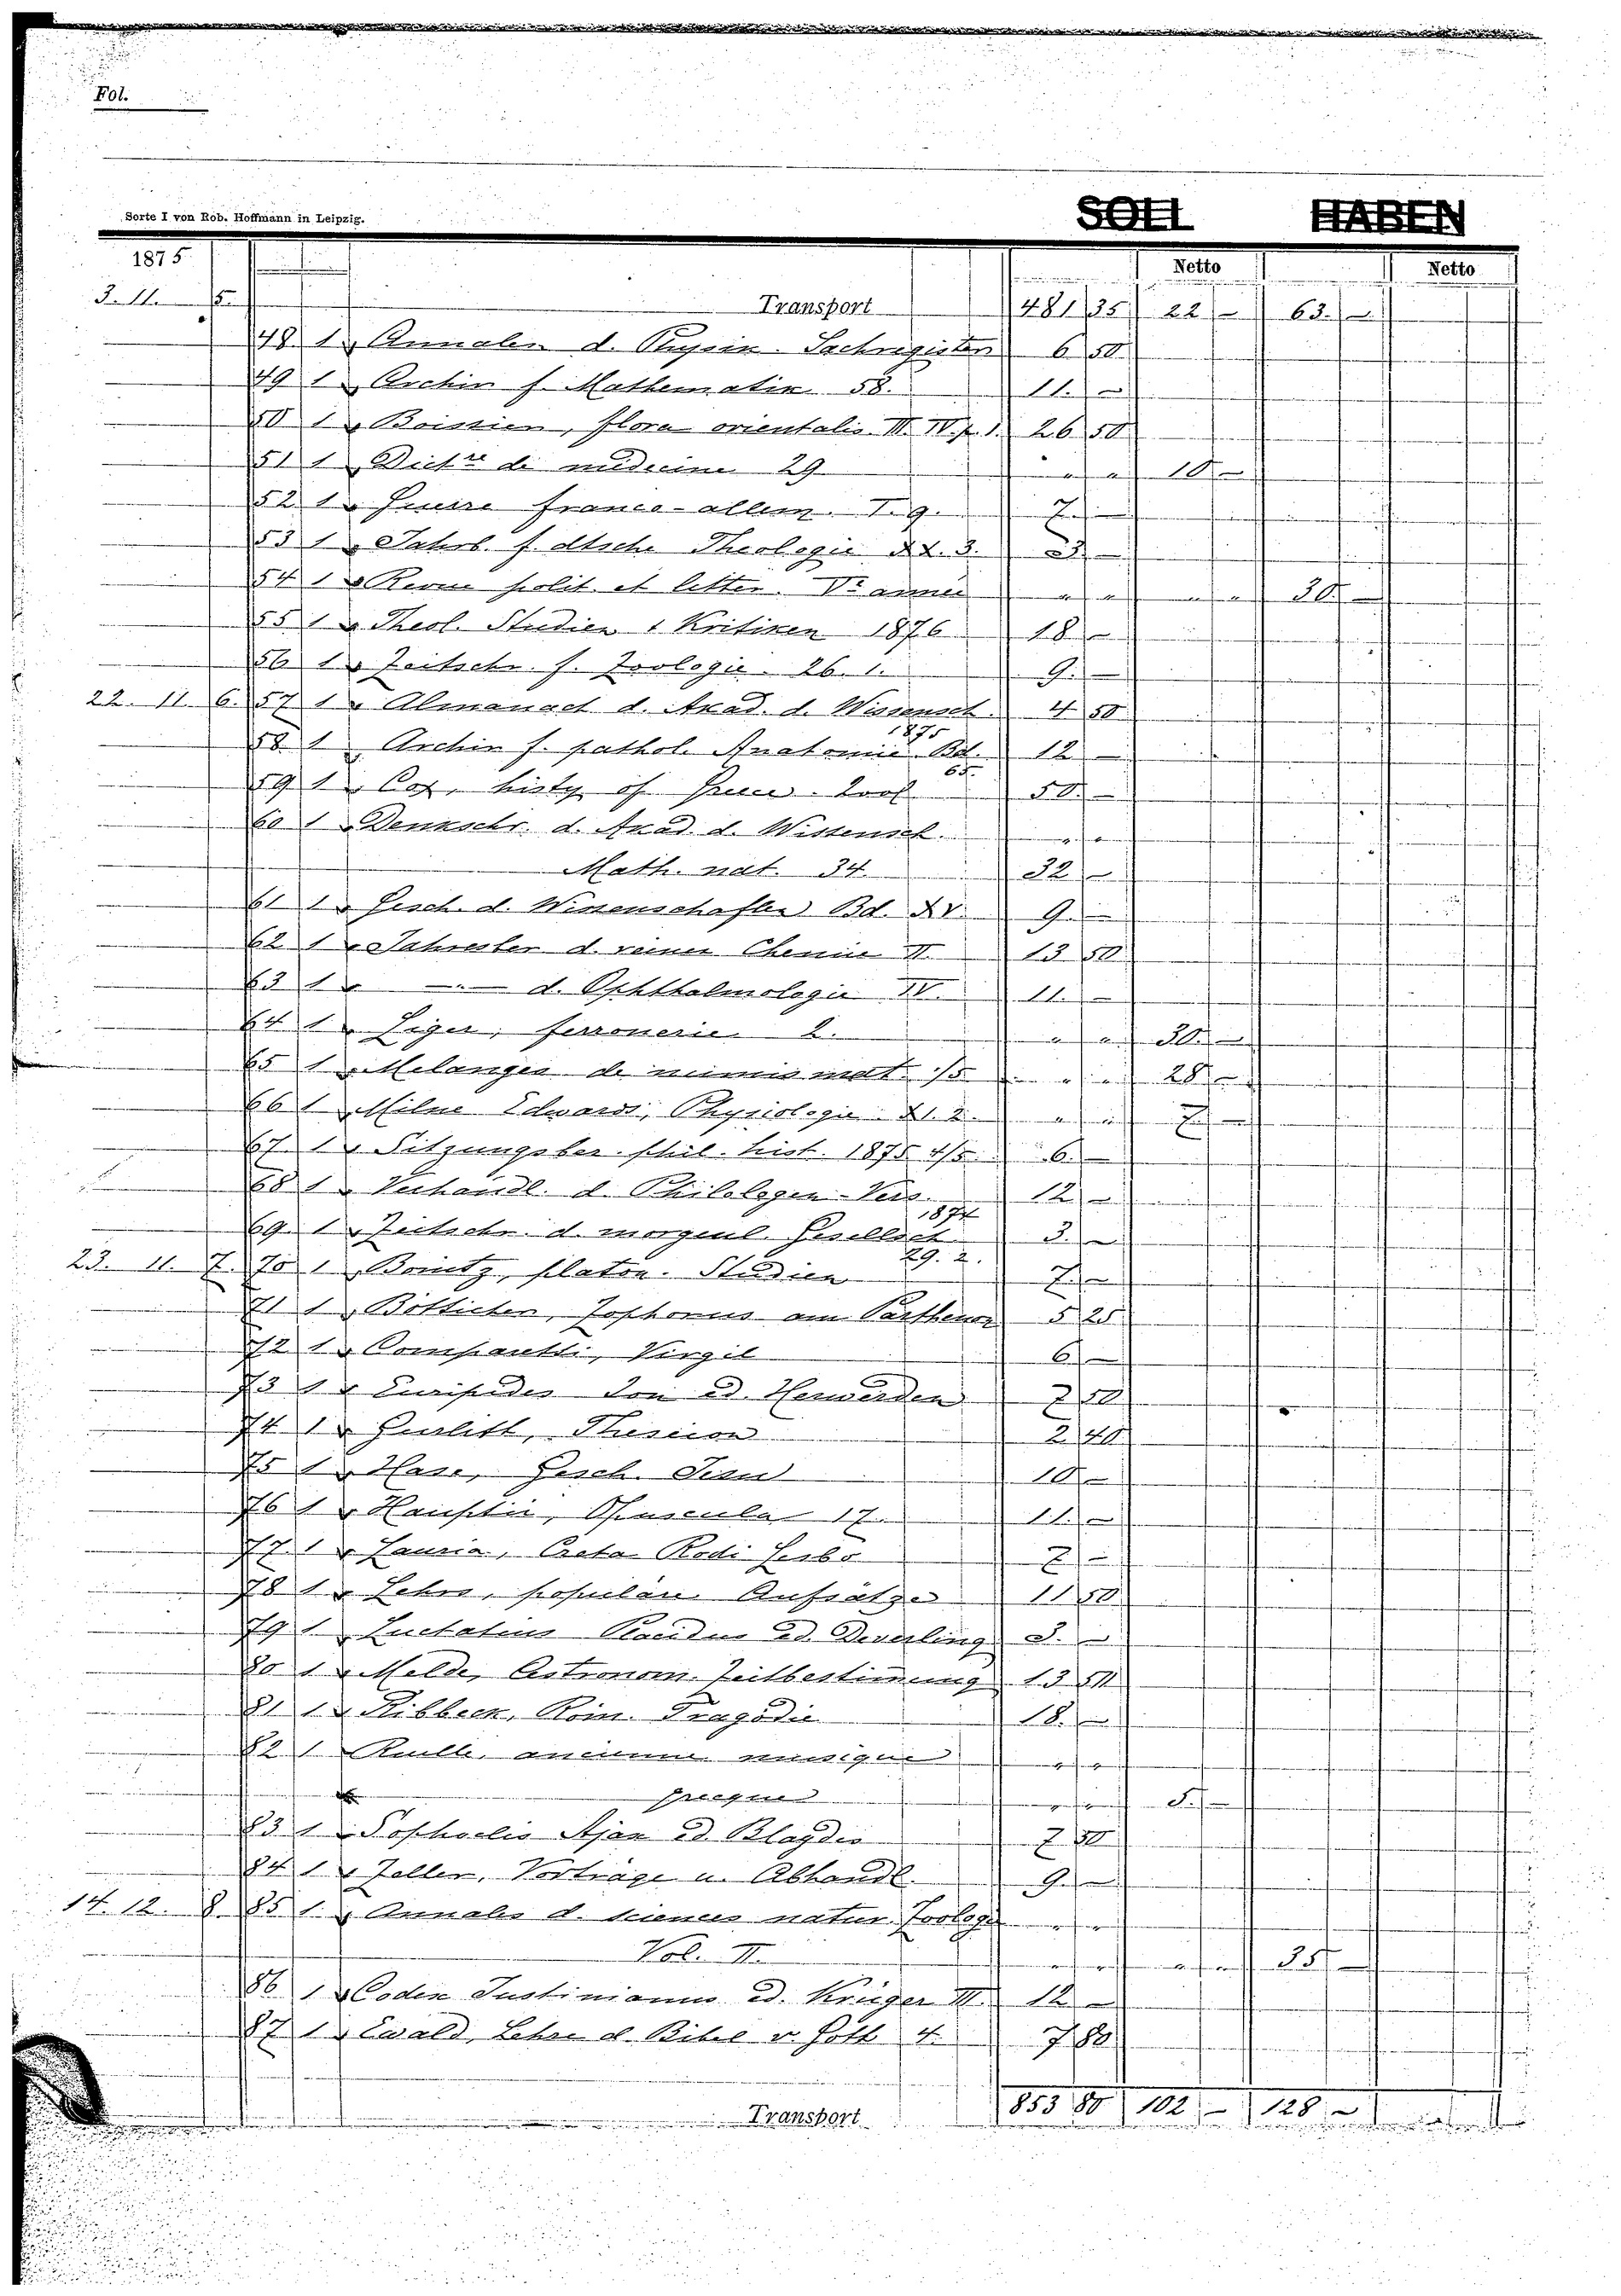 Fol.
Sorte I von Rob. Hoffmann in Leipzig. SOLL HABEN
1875 Netto Netto
3. 11. 5. Transport 481 35 22 - 63. -
48 1 Annalen d. Physik. Sachregister 6 50
49 1 Archiv f. Mathematik 58. 11. -
50 1 " Boissier, flora orientalis III. IV. f. 1. 26 50
51 1 Dictre de médecine 29 " " 10 -
52 1 " Guerre franco-allem. I. 9. 7. -
53 1 " Jahrb. f. dtsche Theologie XX. 3. 3 -
54 1 " Revue polit. et litter. Ve année " " " " 30 -
55 1 " Theol. Studien & Kritiken 1876 18 -
56 1 " Zeitschr. f. Zoologie. 26. 1. 9. -
22. 11. 6. 57 1 " Almanach d. Akad. d. Wissensch. 4 50
1875
58 1 Archiv f. pathol. Anatomie Bd. 12 -
65.
59 1 " Cox, histy of Greece. 50. -
60 1 " Denkschr. d. Akad. d. Wissensch. " "
Math. nat. 34. 32 -
61 1 " Gesch. d. Wissenschaften Bd. XV. 9. -
62 1 " Jahresber d. reinen Chemie II. 13 50
63 1 " — " — d. Ophthalmologie IV. 11. -
64 1 " Liger, ferronerie. 2. " " 30. -
65 1 " Melanges de numismat. 1/5 " " 28 -
66 1 " Milne Edwards, Physiologie. XI. 2. " " 7. -
67. 1 " Sitzungsber. phil. hist. 1875 4/5 6. -
68 1 " Verhandl. d. Philologen-Vers. 12 -
1874
69. 1 " Zeitschr. d. morgenl. Gesellsch. 3. -
29. 2.
23. 11. 7. 70 1 " Bonitz, platon. Studien 7. -
71 1 " Bötticher, Zophorus am Parthenon 5 25
72 1 " Comparetti, Virgil 6. -
73 1 " Euripides Ion ed. Herwerden 7 50
74 1 " Gurlitt, Theseion 2. 40
75 1 " Hase, Gesch. Jesu 10 -
76 1 " Hauptii, Opuscula 17. 11. -
77. 1 " Lauria, Creta Rodi Lesbo 7 -
78 1 " Lehrs, populäre Aufsätze 11 50
79 1. " Luctatius Placidus ed. Deuerling 3. -
80 1 " Melde, Astronom. Zeitbestimmung 13 50
81 1 " Ribbeck, Röm. Tragödie 18. -
82 1 " Ruelle, ancienne musique " "
grecque " " 5. -
83 1 " Sophoclis Ajax ed. Blaydes 7. 50
84 1 " Zeller, Vorträge u. Abhandl. 9. -
14. 12. 8. 85 1. " Annales d. sciences natur. Zoologie " "
Vol. II. " " " " 35 -
86 1 " Codex Justinianus ed. Krüger III. 12 -
87 1 " Ewald, Lehre d. Bibel v. Gott 4. 7. 80
Transport 853 80 102 - 128 -